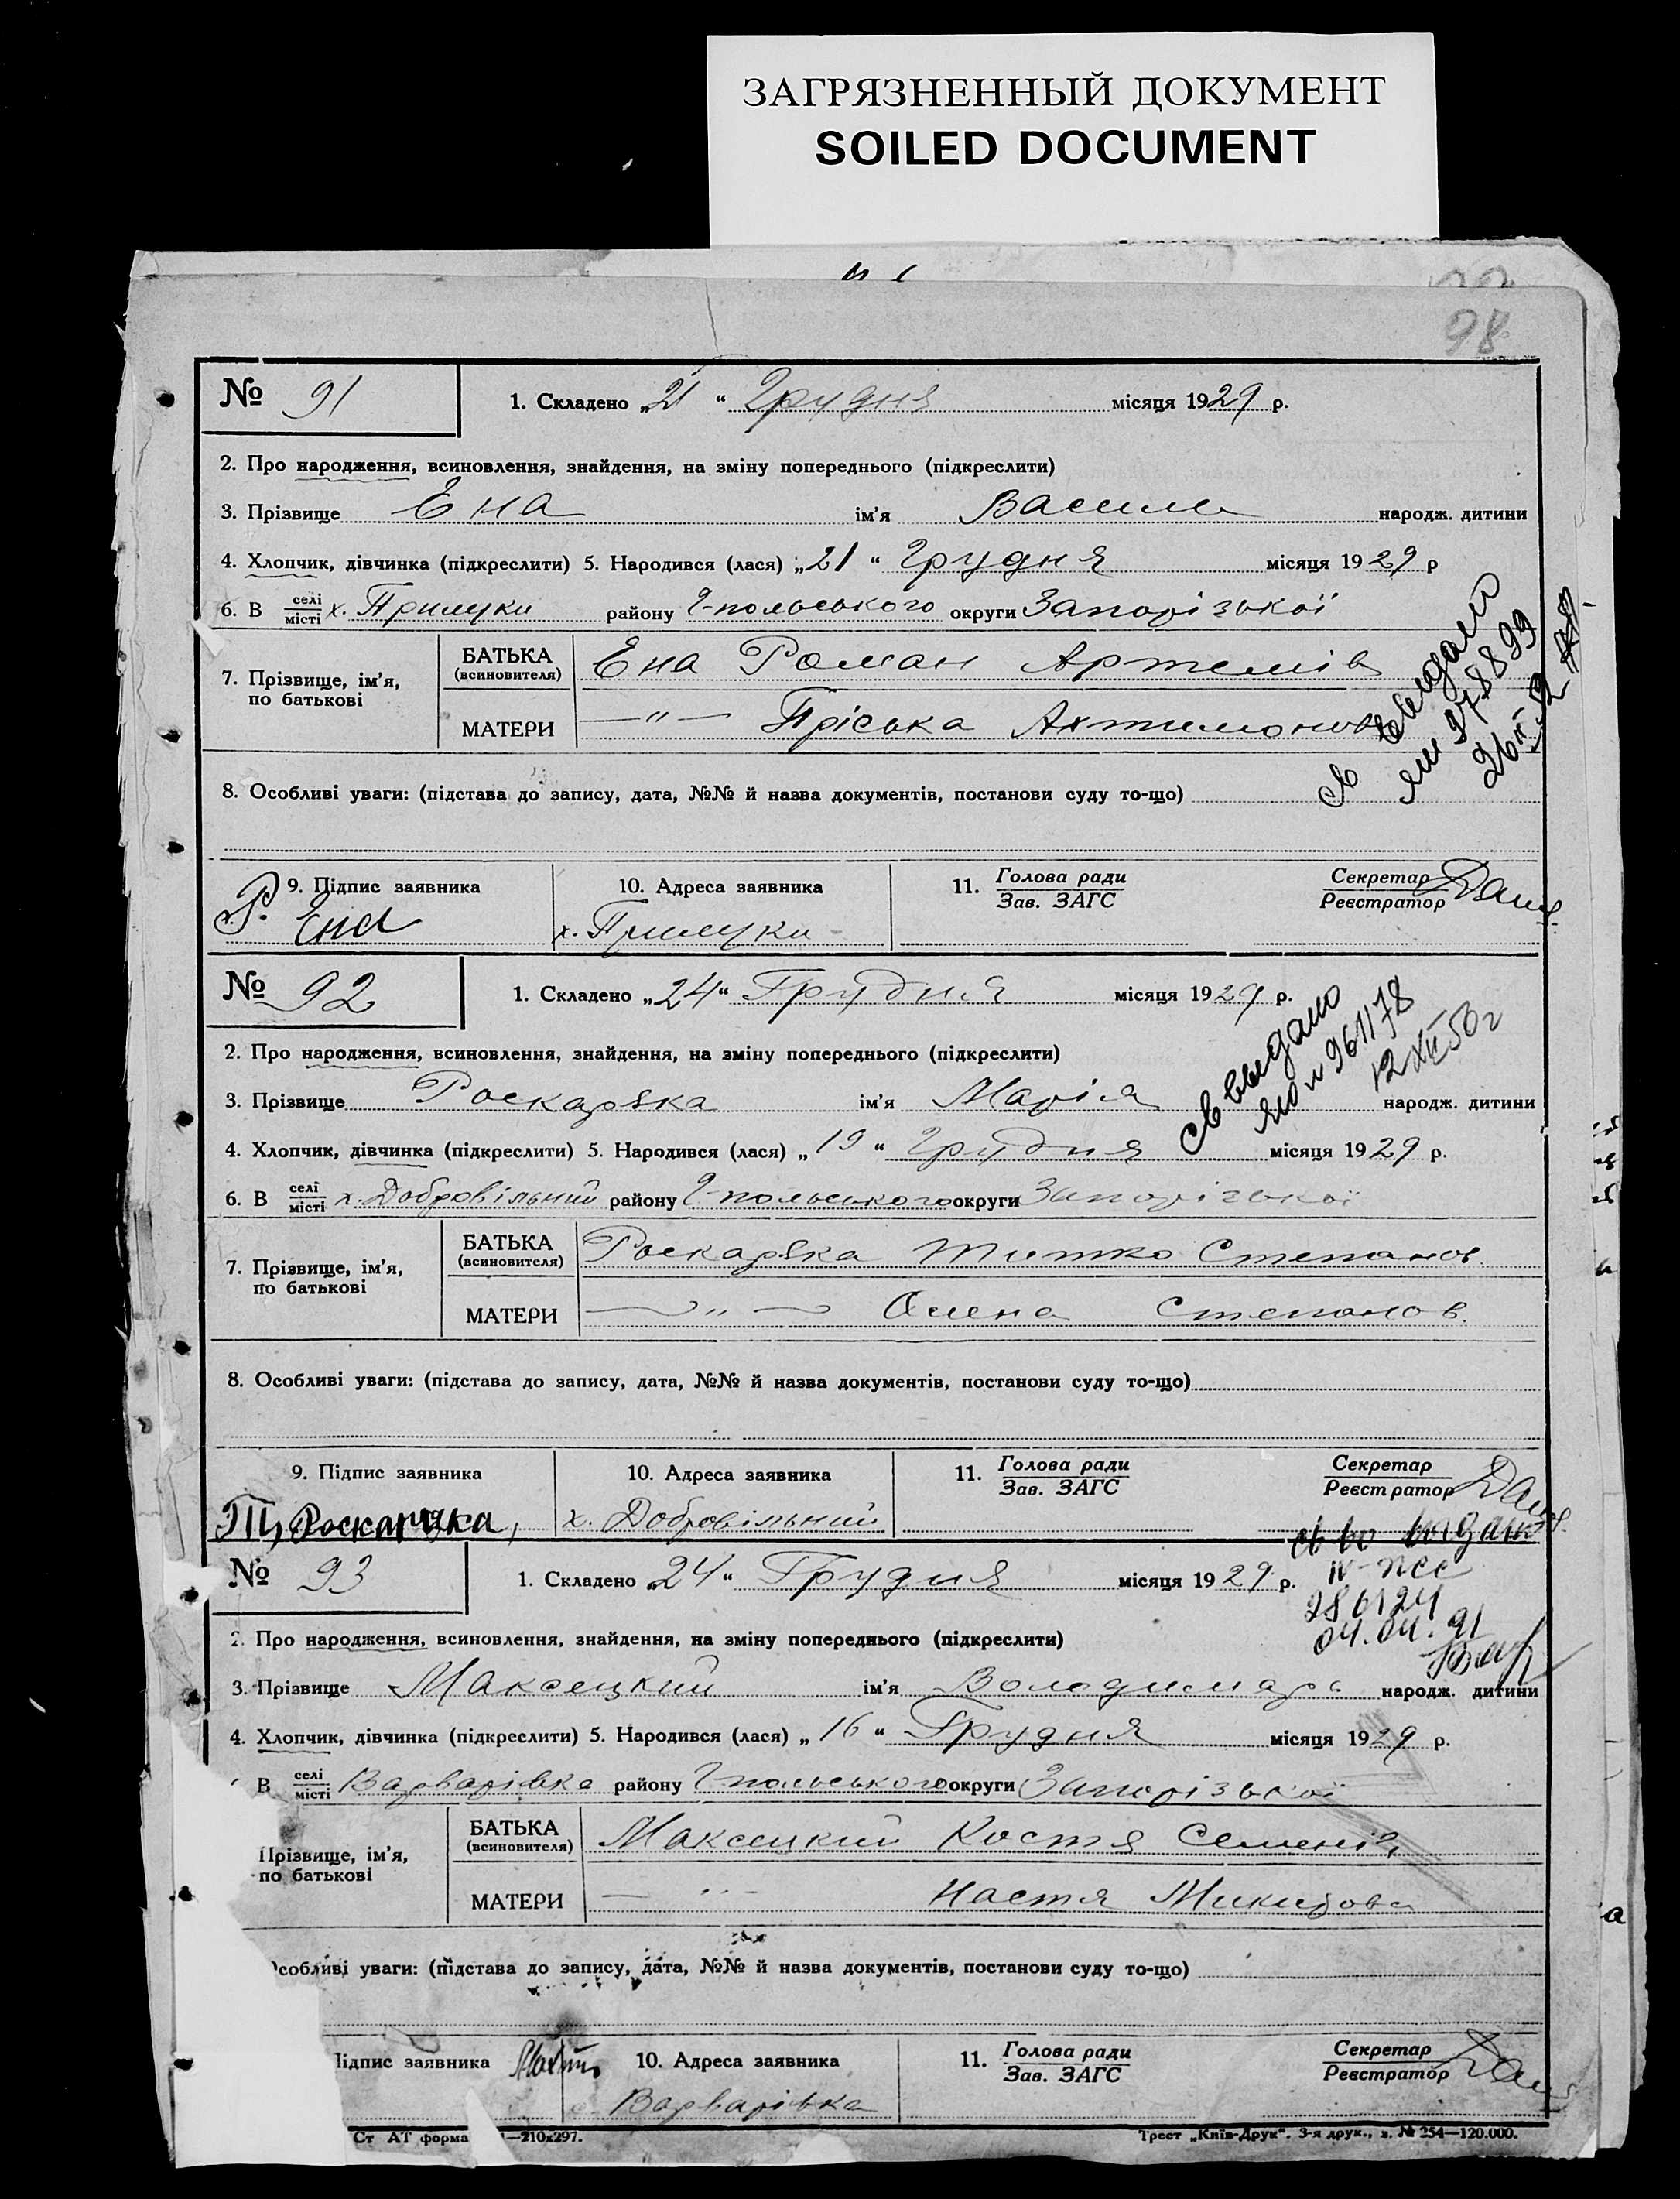 ЗАГРЯЗНЕННЫЙ ДОКУМЕНТ
SOILED DOCUMENT
98
№ 91 1. Складено „21“ Грудня місяця 1929 р.
2. Про народження, всиновлення, знайдення, на зміну попереднього (підкреслити)
3. Прізвище Ена ім'я Василь народж. дитини
4. Хлопчик, дівчинка (підкреслити) 5. Народився (лася) „21“ Грудня місяця 1929 р
6. В селі місті х. Прилуки району Г-польського округи Запорізької
7. Прізвище, ім'я, по батькові
БАТЬКА (всиновителя) Ена Роман Артемів
МАТЕРИ —"— Пріська Ахтимонов
св выдано
26
8. Особливі уваги: (підстава до запису, дата, №№ й назва документів, постанови суду то-що)
9. Підпис заявника 10. Адреса заявника 11. Голова ради Зав. ЗАГС Секретар Реєстратор
Р. Ена х. Прилуки
№ 92 1. Складено „24“ Грудня місяця 1929 р.
св выдано
961178
12 XII 50 г
2. Про народження, всиновлення, знайдення, на зміну попереднього (підкреслити)
3. Прізвище Роскаряка ім'я Марія народж. дитини
4. Хлопчик, дівчинка (підкреслити) 5. Народився (лася) „19“ Грудня місяця 1929 р.
6. В селі місті х. Добровільний району Г-польського округи Запорізької
7. Прізвище, ім'я, по батькові
БАТЬКА (всиновителя) Роскаряка Титко Степанов.
МАТЕРИ —"— Олена Степанов.
8. Особливі уваги: (підстава до запису, дата, №№ й назва документів, постанови суду то-що)
9. Підпис заявника 10. Адреса заявника 11. Голова ради Зав. ЗАГС Секретар Реєстратор
Роскаряка, х. Добровільний
№ 93 1. Складено „24“ Грудня місяця 1929 р.
св во выдано
286124
04.04.91
2. Про народження, всиновлення, знайдення, на зміну попереднього (підкреслити)
3. Прізвище Максецкий ім'я Володимарь народж. дитини
4. Хлопчик, дівчинка (підкреслити) 5. Народився (лася) „16“ Грудня місяця 1929 р.
В селі місті Варварівка району Г-польського округи Запорізької
Прізвище, ім'я, по батькові
БАТЬКА (всиновителя) Максецкий Костя Семенів
МАТЕРИ —"— Настя Микитова
собливі уваги: (підстава до запису, дата, №№ й назва документів, постанови суду то-що)
Підпис заявника 10. Адреса заявника 11. Голова ради Зав. ЗАГС Секретар Реєстратор
Варварівка
Ст АТ форма —210х297. Трест „Київ-Друк“. 3-я друк., з. № 254—120.000.